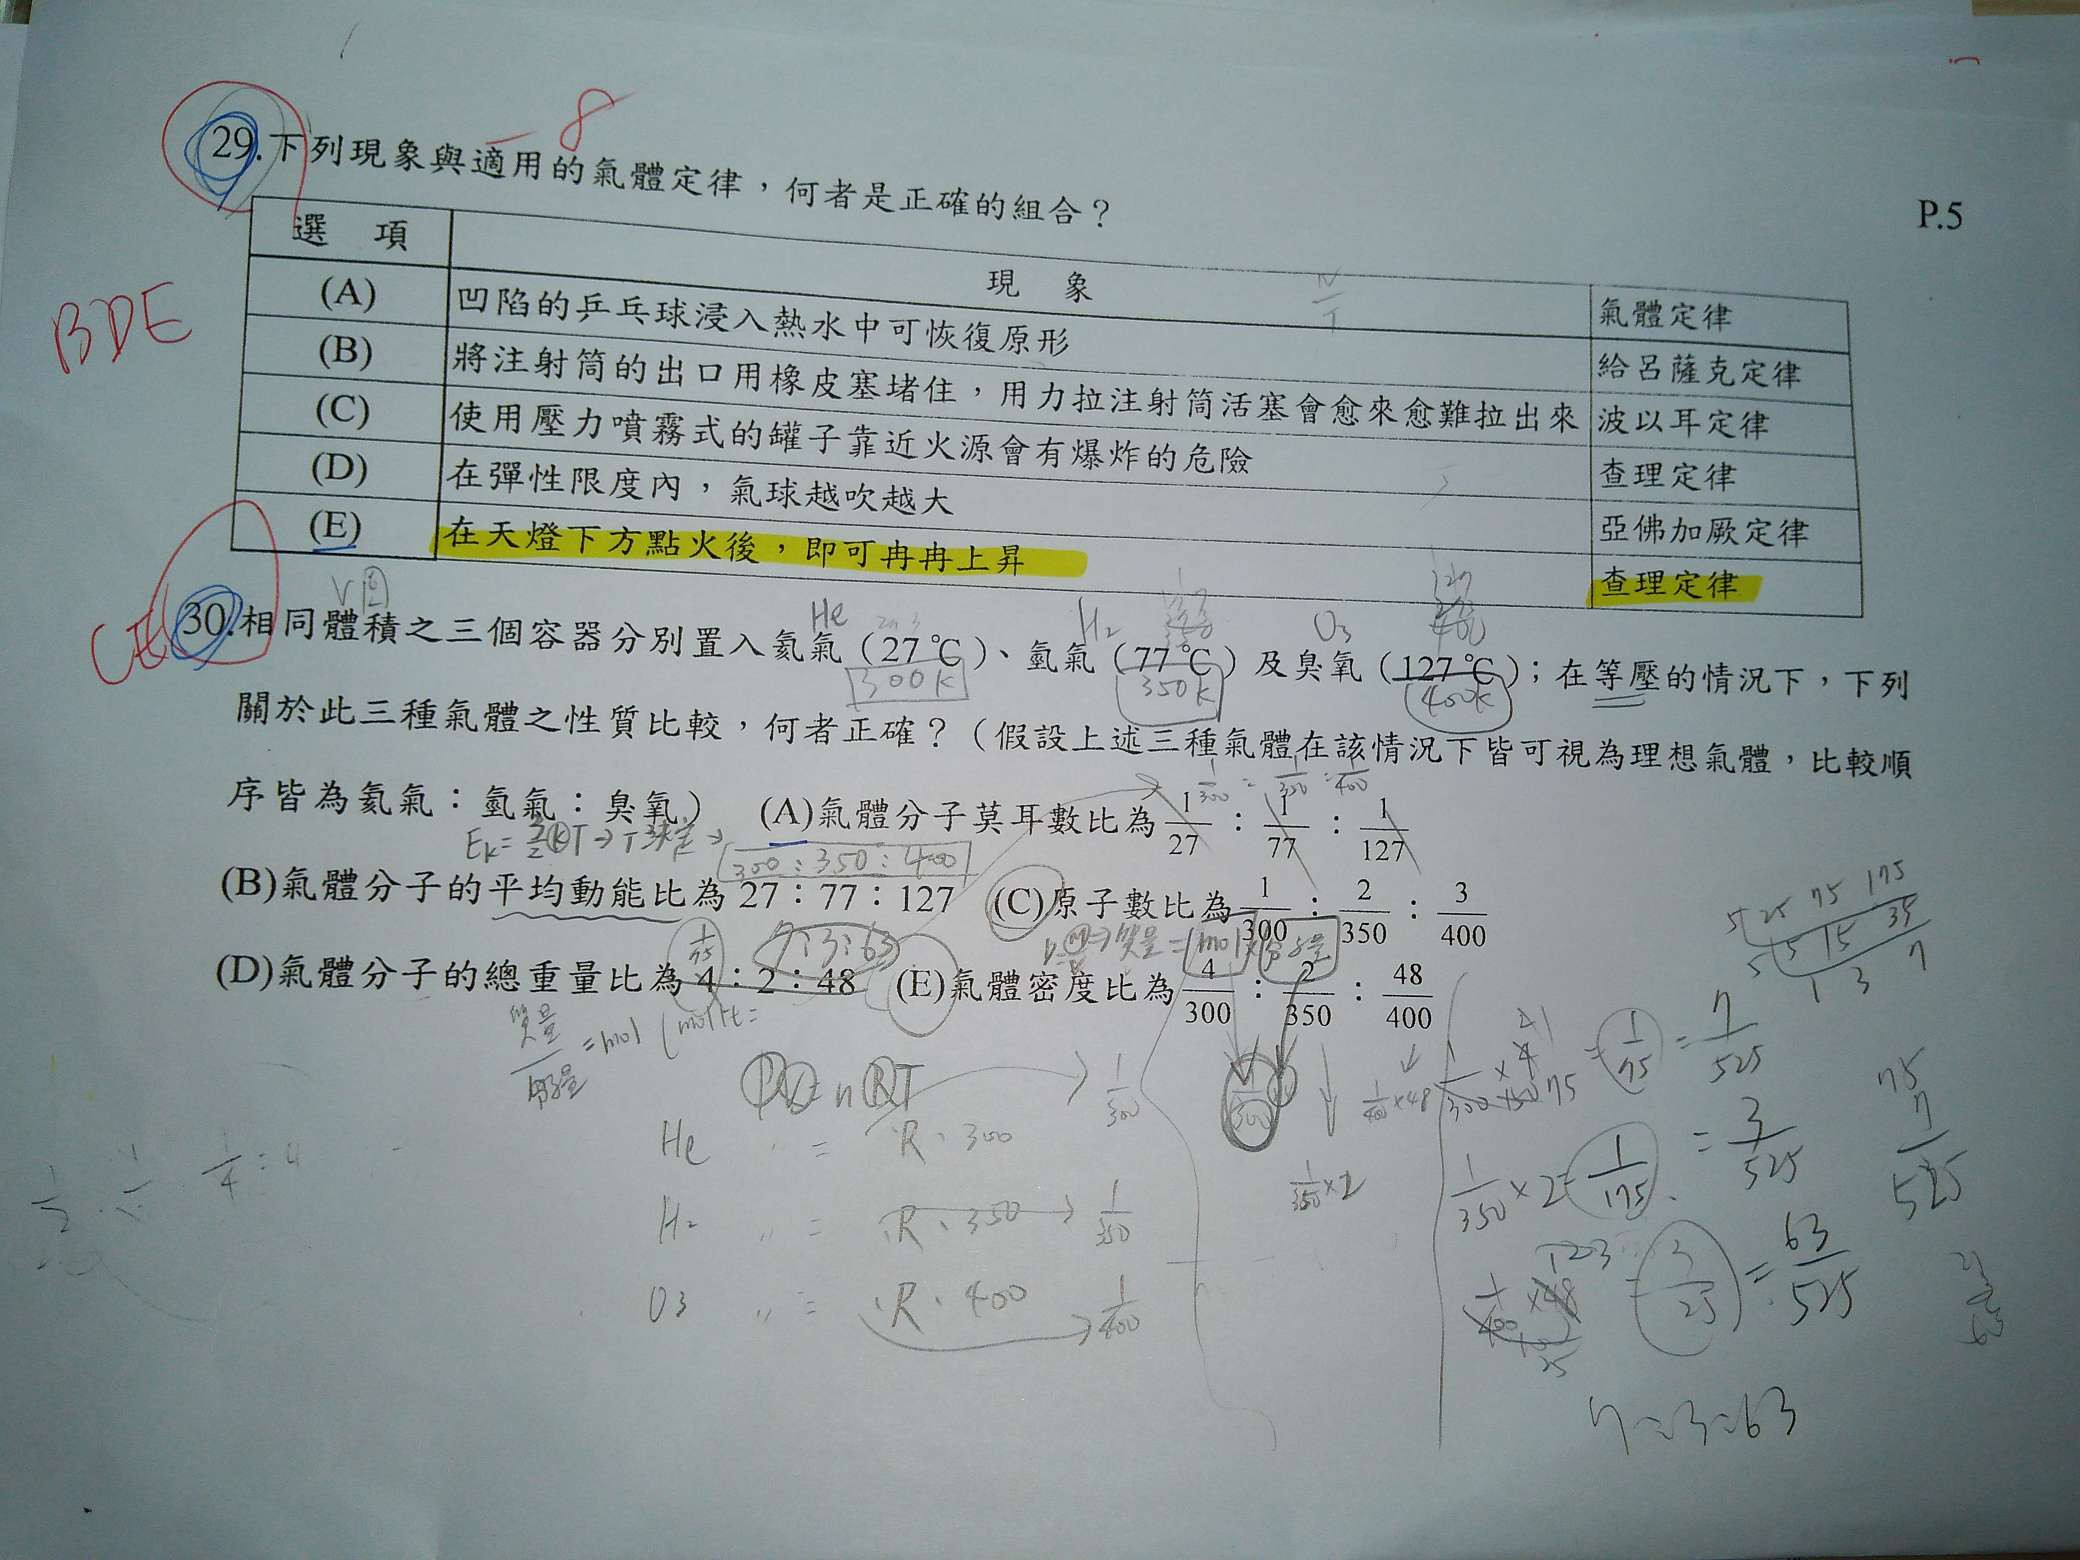 -8
29.下列現象與適用的氣體定律，何者是正確的組合？
P.5
選 項 現 象 氣體定律
(A) 凹陷的乒乓球浸入熱水中可恢復原形 給呂薩克定律
(B) 將注射筒的出口用橡皮塞堵住，用力拉注射筒活塞會愈來愈難拉出來 波以耳定律
(C) 使用壓力噴霧式的罐子靠近火源會有爆炸的危險 查理定律
(D) 在彈性限度內，氣球越吹越大 亞佛加厥定律
(E) 在天燈下方點火後，即可冉冉上昇 查理定律
BDE
CE
He H2 O3
30.相同體積之三個容器分別置入氦氣（27℃）、氫氣（77℃）及臭氧（127℃）；在等壓的情況下，下列
300K 350K 400K
關於此三種氣體之性質比較，何者正確？（假設上述三種氣體在該情況下皆可視為理想氣體，比較順
1/300 : 1/350 : 1/400
序皆為氦氣：氫氣：臭氧） (A)氣體分子莫耳數比為 1/27 : 1/77 : 1/127
300:350:400
(B)氣體分子的平均動能比為 27：77：127 (C)原子數比為 1/300 : 2/350 : 3/400
7:3:63
(D)氣體分子的總重量比為 4：2：48 (E)氣體密度比為 4/300 : 2/350 : 48/400
質量/分子量 = mol
PV = nRT
He 〃 = R·300 1/300
H2 〃 = R·350 1/350
O3 〃 = R·400 1/400
1/350×2
1/400×48
1/75 = 7/525
1/350×2 = 1/175 = 3/525
3/25 = 63/525
7:3:63
5 25 75 175
5 5 15 35
1 3 7